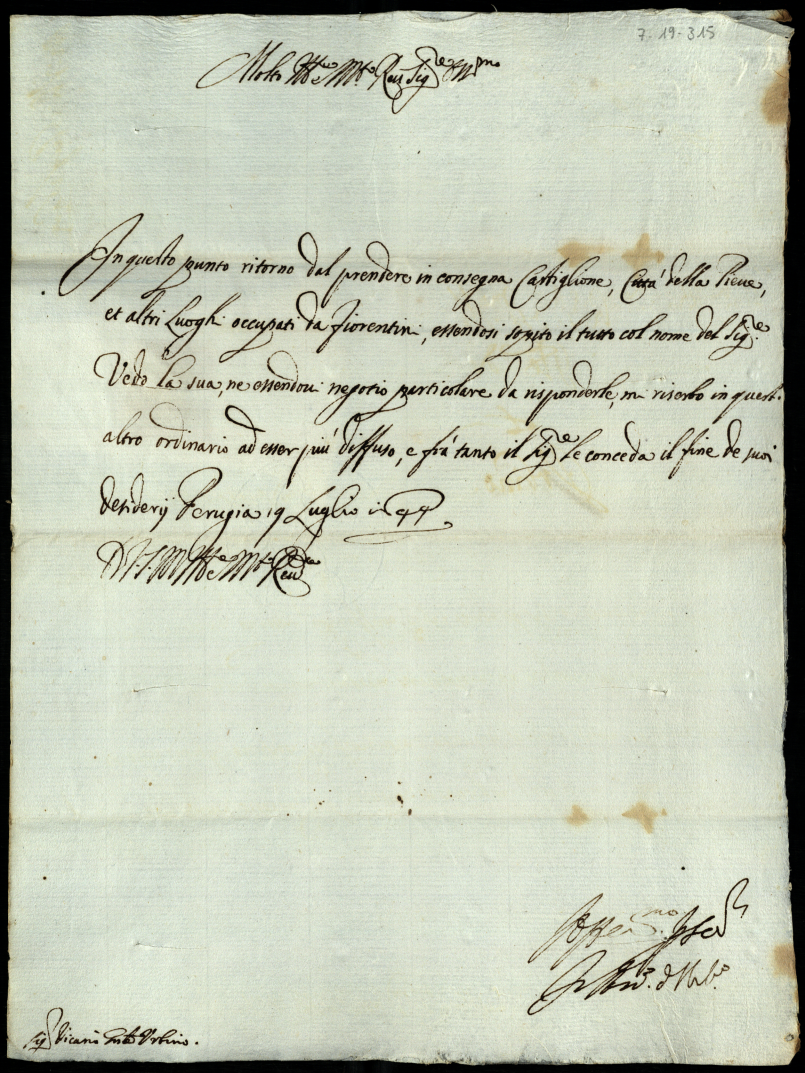 7-19-315
Molto Ill.re M.to Rev. Sig.re
In questo punto ritorno dal prendere in consegna Castiglione, Città della Pieve,
et altri Luoghi occupati da fiorentini, essendosi sopito il tutto col nome del Sig.re
Vedo la sua, ne essendoui negotio particolare da risponderle, mi riserbo in quest
altro ordinario ad esser più diffuso, e frà tanto il Sig.re le conceda il fine de suoi
desiderij Perugia 19 Luglio
D. V. S. M. Ill.e M.to Rev.da
Sig. Vicario Urbino.